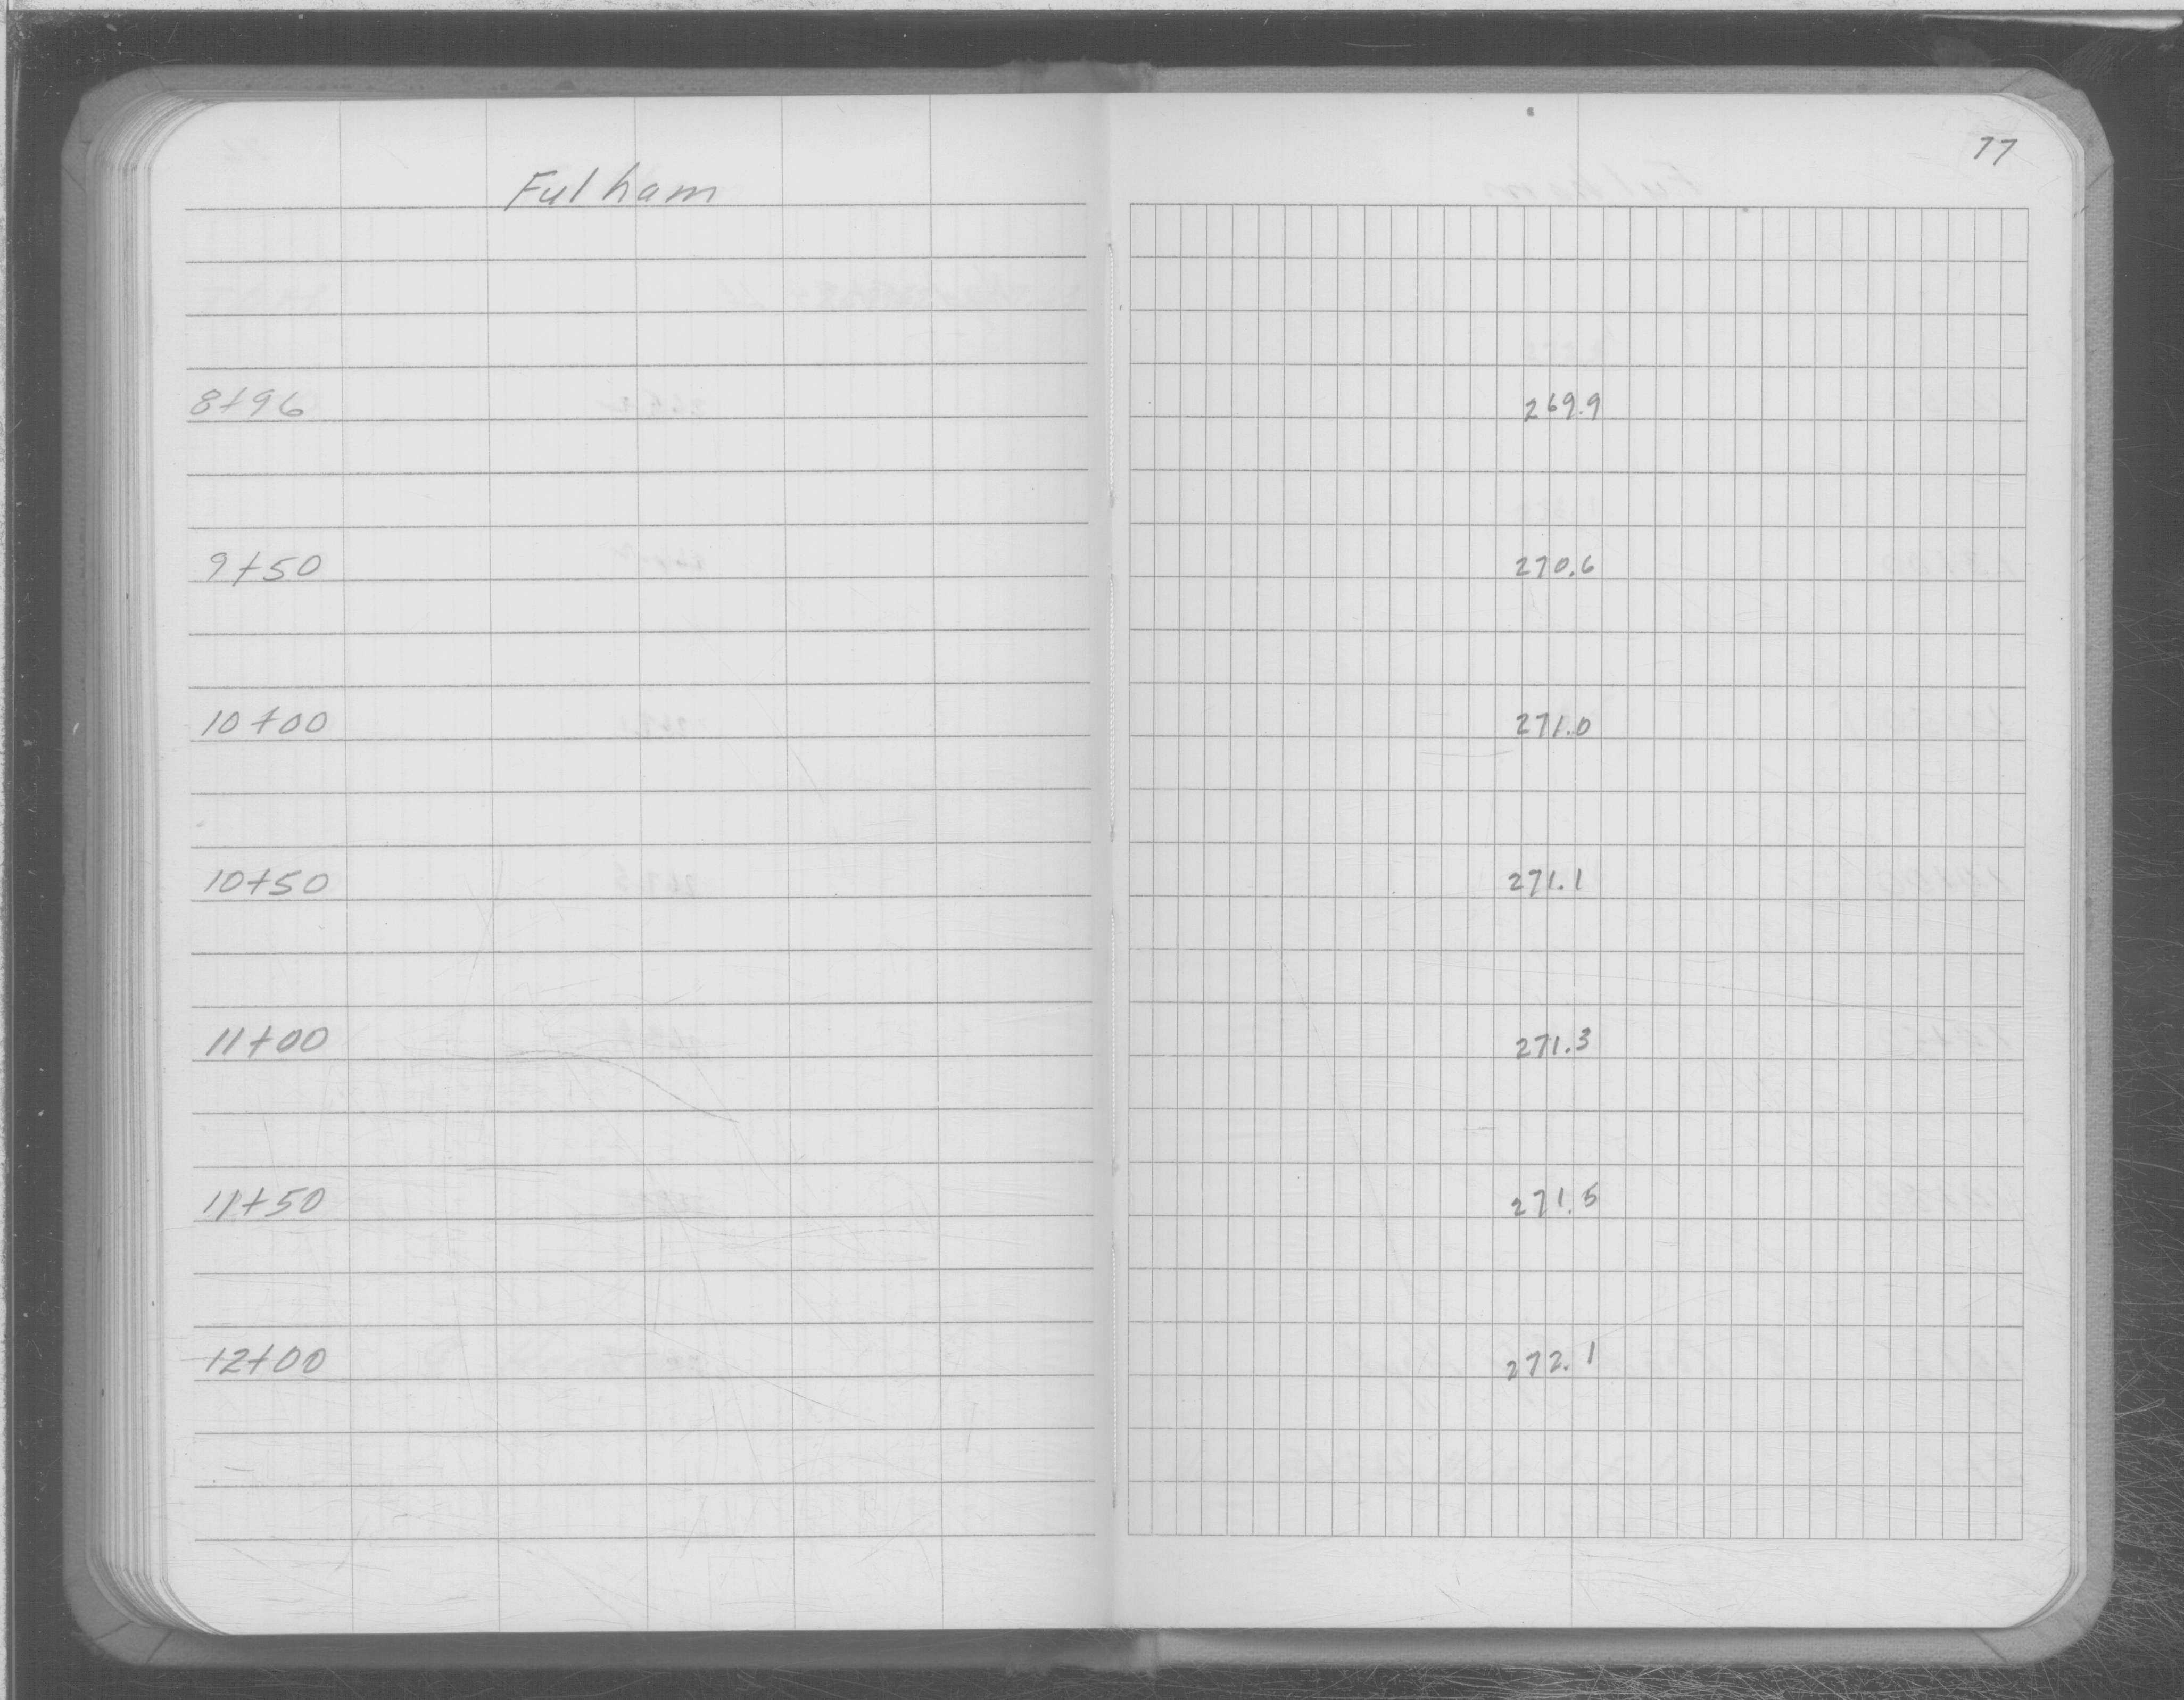 77
Fulham
8+96 269.9
9+50 270.6
10+00 271.0
10+50 271.1
11+00 271.3
11+50 271.5
12+00 272.1